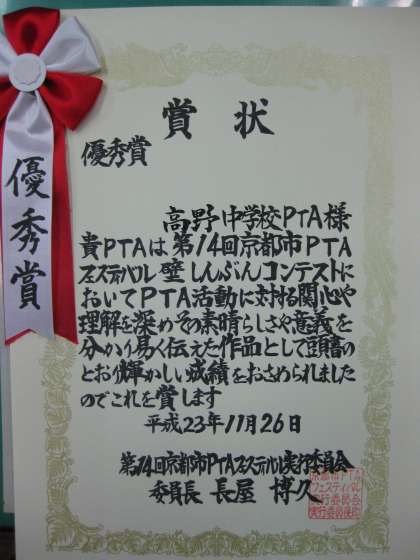 優秀賞
賞状
優秀賞
高野中学校PTA様
貴PTAは第14回京都市PTA
フェスティバル壁しんぶんコンテストに
おいてPTA活動に対する関心や
理解を深めその素晴らしさや意義を
分かり易く伝えた作品として頭書の
とおり輝かしい成績をおさめられました
のでこれを賞します
平成23年11月26日
第14回京都市PTAフェスティバル実行委員会
委員長 長屋 博久
京都市PTA
フェスティバル
実行委員会
実行委員長印